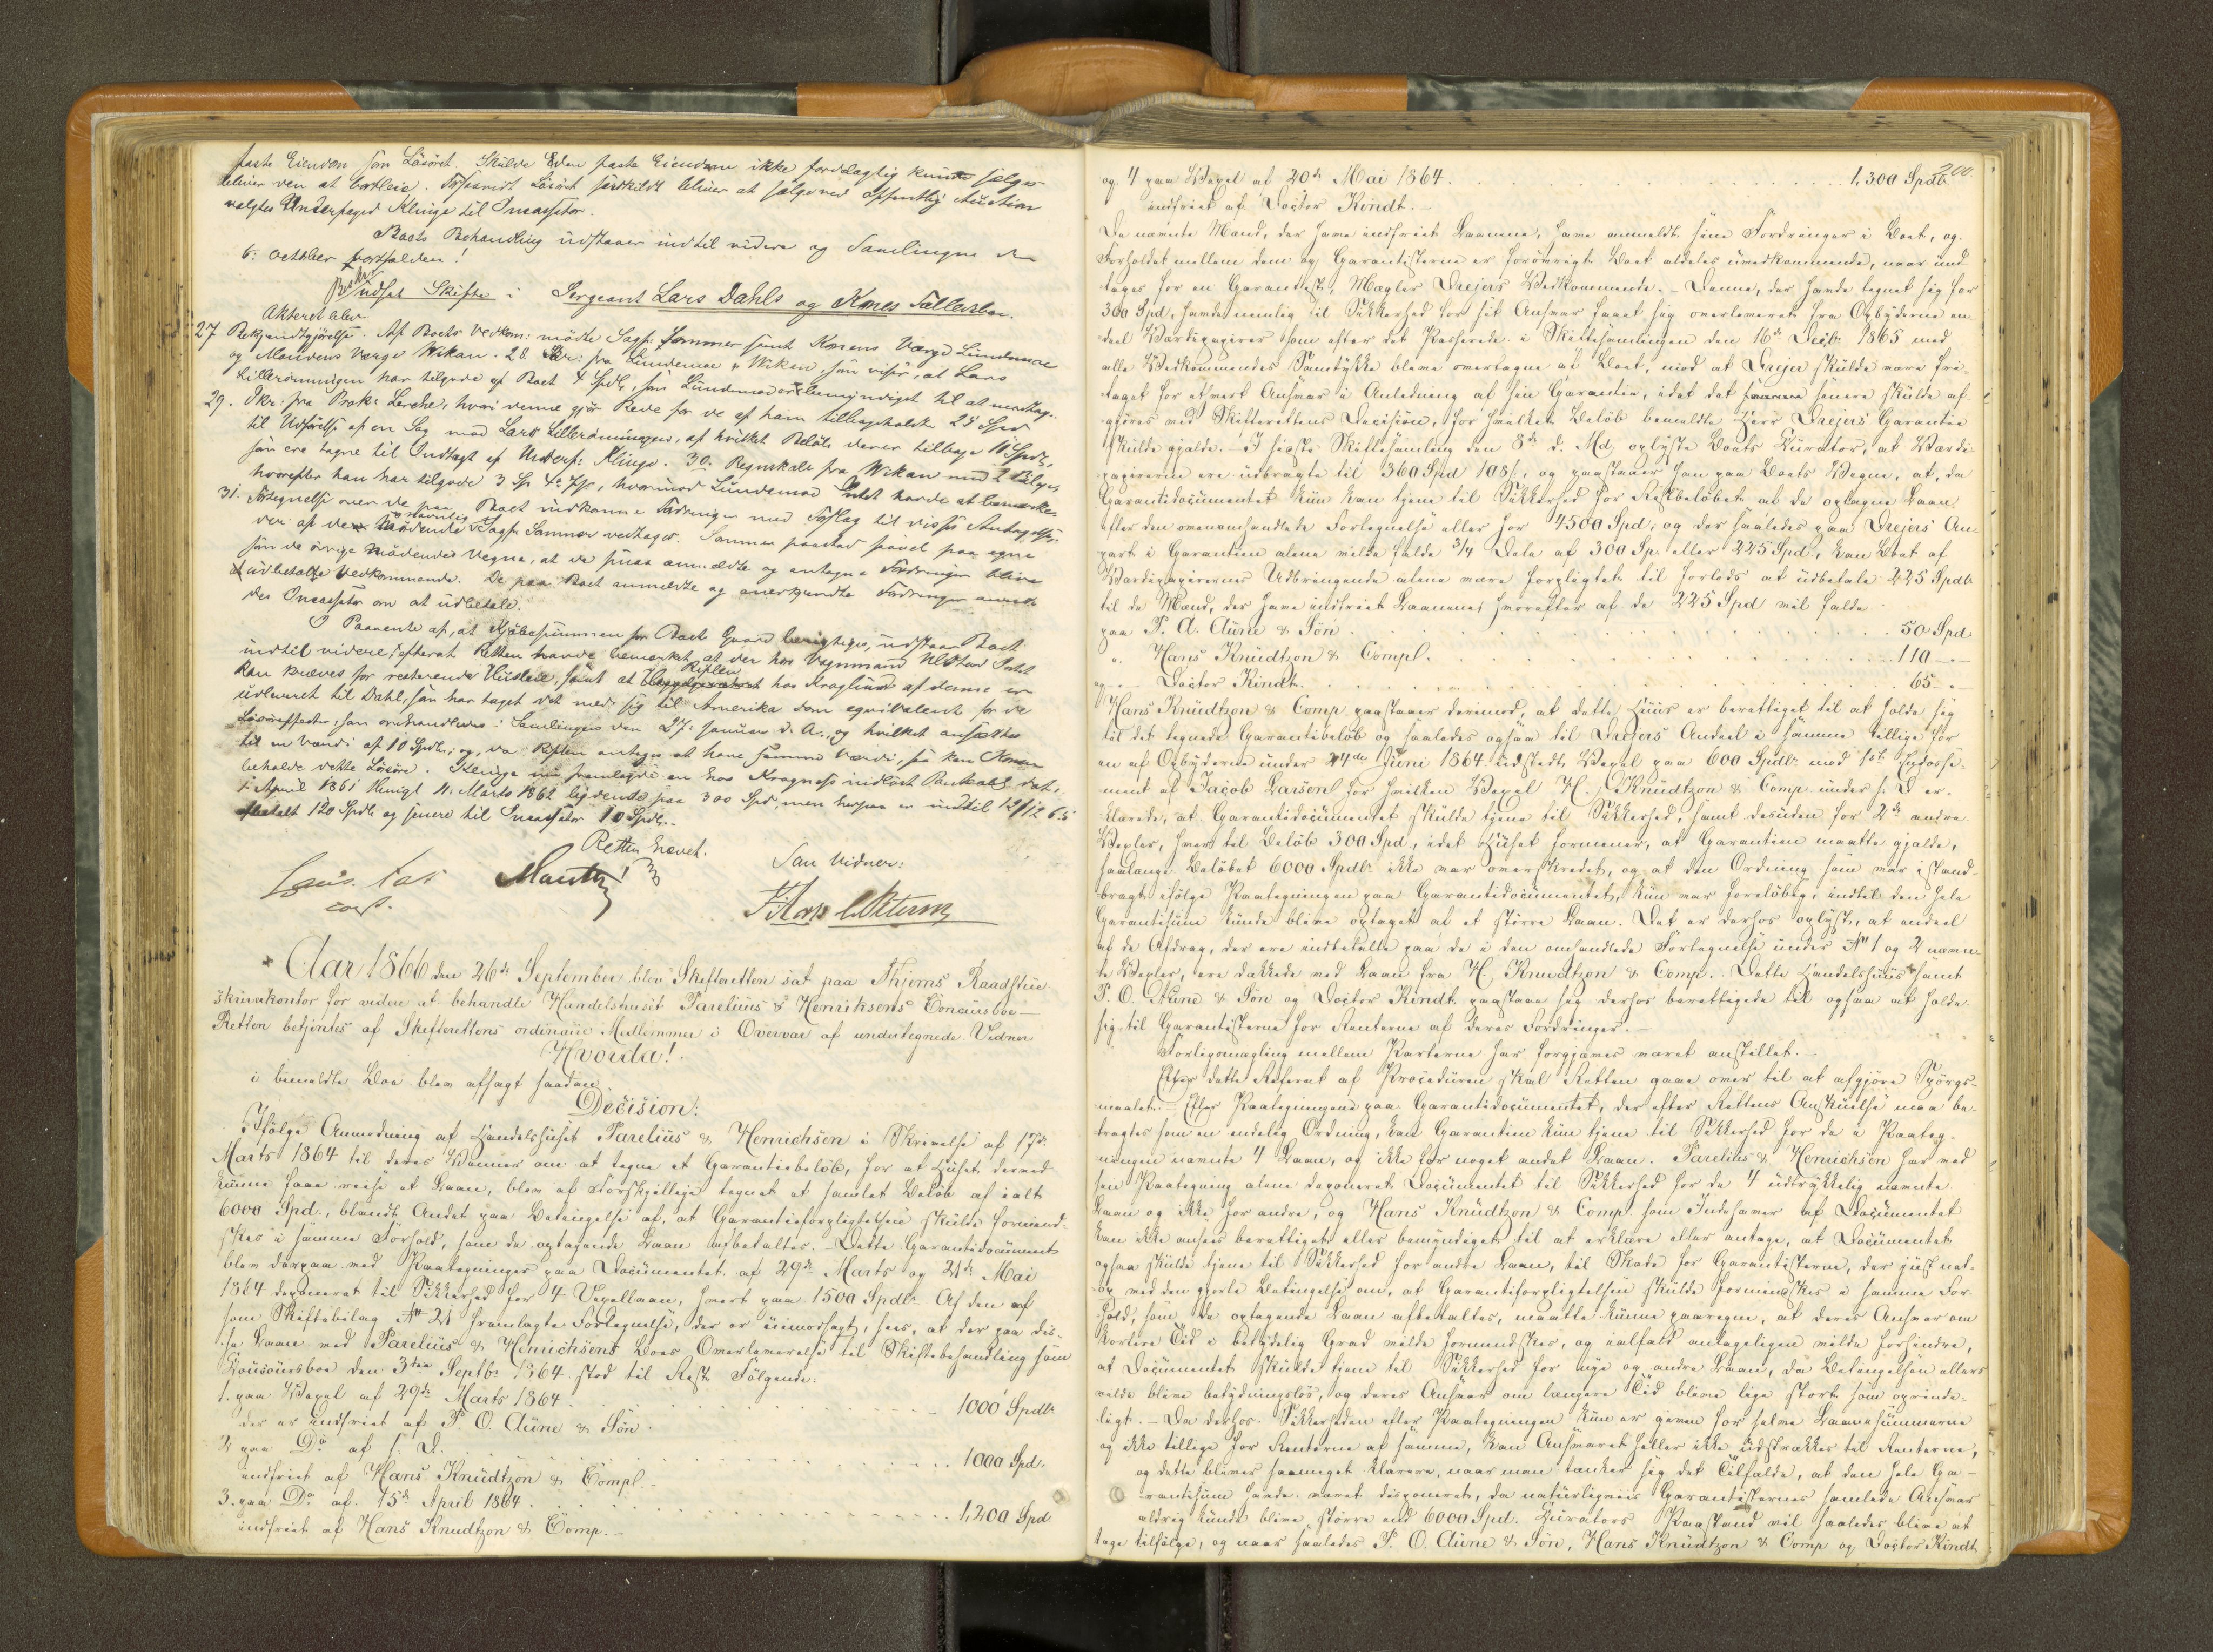 faste Eiendom som Løsøret. Skulde den faste Eiendom ikke fordelagtig kunde sælges
bliver den at bortleie. Forsaavidt Løsøret særskildt bliver at sælge ved offentlig Auction
valgtes Underfoged Klinge til Incassator.
Boets Behandling udstaaer indtil videre og Samlingen den
6. october bortfalder!
Besluttet
udsat Skifte i Sergeant Lars Dahls og Kones Fællesbo.
Akteret blev
27 Bekjendtgjørelse. Af Boets Vedkom: mødte Sagf: Sommer samt Konens Værge Lundemoe
og Mandens Værge Wikan. 28 Skr: fra Lundemoe & Wikan, som viser, at Lars
Lillerønningen har tilgode af Boet 4 Spdlr, som Lundemoe er bemyndiget til at modtage.
29. Skr: fra Prok: Lerche, hvori denne gjør Rede for de af ham tilbageholdte 25 Spd
til Udførelse af en Sag mod Lars Lillerønningen, af hvilket Beløb derer tilbage 11 Spdlr,
som ere tagne til Indtægt af Underf: Klinge. 30. Regnskab fra Wikan med 2 Bilage,
hvorefter han har tilgode 3 Sp 4 ß, hvorimod Lundemoe Intet havde at bemærke.
31. Fortegnelse over de paa Boet indkomne Fordringer med Forslag til disses Antagelse,
der af de Mødende navnlig Sagf: Sommer vedtages. Sommer paastod saavel paa egne
som de øvrige Mødendes Vegne, at de saaa anmeldte og antagne Fordringer bleve
at udbetale Vedkommende. De paa Boet anmeldte og anerkjendte Fordringer anmodes
des Incassator om at udbetale.
I Paavente af, at Kjøbesummen for Boets Gaard berigtiges, udstaar Boet
indtil videre, efterat Retten havde bemærket, at der hos Vognmand Ulstad Intet
kan kræves for resterende Huusleie, samt at Riflen hos Kraglund af denne er
udleveret til Dahl, som har taget det med sig til Amerika som equivalent for de
Løsøreffecter, som omhandledes i Samlingen den 27. Januar d. A., og hvilket ansættes
til en Værdi af 10 Spdlr; og, da Riflen antages at have samme Værdi, så kan Konen
beholde dette Løsøre. Klinge nu fremlagde en hos Kragness indløst Pantobl: dat.
1. April 1861 thingl 11. Marts 1862 lydende paa 300 Spd, men herpaa er indtil 12/12 65
betalt 120 Spdlr og senere til Incassator 10 Spdlr.
Retten hævet.
Som Vidner:
Aar 1866 den 26de September blev Skifteretten sat paa Thjems Raadstue-
skriverkontor for videre at behandle Handelshuset Parelius & Henriksens Concursboe—
Retten betjentes af Skifterettens ordinaire Medlemmer i Overvær af undertegnede Vidner
Hvorda!
i bemeldte Boe blev afsagt saadan
Decision:
Ifølge Anmodning af Handelshuset Parelius & Henrichsen i Skrivelse af 17de
Marts 1864 til deres Venner om at tegne et Garantiebeløb, for at Huset dermed
kunne faae reise et Laan, blev af Forskjellige tegnet et samlet Beløb af ialt
6000 Spd., blandt Andet paa Betingelse af, at Garantieforpligtelsen skulde formind-
skes i samme Forhold, som de optagende Laan afbetaltes. Dette Garantidocument
blev derpaa med Paategninger paa Documentet af 29de Marts og 21de Mai
1864 deponeret til Sikkerhed for 4 Vexellaan, hvert paa 1500 Spdlr. Af den af
som Skiftebilag No 21 fremlagte Fortegnelse, der er uimodsagt, sees, at der paa dis-
se Laan ved Parelius & Henrichsens Boes Overleverelse til Skiftebehandling som
Concursboe den 3die Septbr. 1864 stod til Rest Følgende:
1. paa Vexel af 29de Marts 1864 . . . . . 1000 Spdlr
der er indfriet af P. O. Aune & Søn.
2 paa Do af s: D. . . . . . 1000 Spd.
indfriet af Hans Knudtzon & Compl.
3. paa Do af 15de April 1864 . . . . . 1,200 Spd
indfriet af Hans Knudtzon & Comp.—
200.
og 4 paa Vexel af 20de Mai 1864. . . . . . 1,300 Spdlr
indfriet af Doctor Kindt.—
De nævnte Mænd, der have indfriet Laanene, have anmeldt sine Fordringer i Boet, og
Forholdet mellem dem og Garantisterne er forøvrigt Boet aldeles uvedkommende, naar und-
tages for en Garantist, Mægler Drejers Vedkommende.— Denne, der havde tegnet sig for
300 Spd, havde nemlig til Sikkerhed for sit Ansvar faaet sig overleveret fra Opbyderne en
deel Værdipapirer som efter det Passerede i Skiftesamlingen den 16de Decbr. 1865 med
alle Vedkommendes Samtykke bleve overtagne af Boet, mod at Drejer skulde være fri-
taget for ethvert Ansvar i Anledning af sin Garantie, idet det senere skulde af-
gjøres ved Skifterettens Decision, for hvilket Beløb bemeldte Herr Drejers Garantie
skulde gjælde. I sidste Skiftesamling den 8de d. Md, oplyste Boets Curator, at Værdi-
papirerne ere udbragte til 360 Spd 108 ß, og paastaaer han paa Boets Vegne, at, da
Garantidocumentet kun kan tjene til Sikkerhed for Restbeløbet af de optagne Laan
efter den ovenomhandlede Fortegnelse eller for 4500 Spd; og der saaledes paa Drejers An-
part i Garantien alene vilde falde 3/4 Dele af 300 Sp. eller 225 Spd, kan Boet af
Værdipapirernes Udbringende alene være forpligtet til forlods at udbetale 225 Spdlr
til de Mænd, der have indfriet Laanene, hvorefter af de 225 Spd vil falde
paa P. O. Aune & Søn . . . . . 50 Spd
" Hans Knudtzon & Compl. . . . . . 110 — " —
og — " — Doctor Kindt. . . . . . 65 — " —
Hans Knudtzon & Comp paastaaer derimod, at dette Huus er berettiget til at holde sig
til det tegnede Garantibeløb og saaledes ogsaa til Drejers Andeel i samme tillige for
en af Opbyderne under 4de Juni 1864 udstedt Vexel paa 600 Spdlr. med 1st Endosse-
ment af Jacob Larsen, for hvilken Vexel H. Knudtzon & Comp under s: D er-
klærede, at Garantidocumentet skulde tjene til Sikkerhed, samt desuden for 2de andre
Vexler, hver til Beløb 300 Spd., idet Huset formener, at Garantien maatte gjælde,
saalænge Beløbet 6000 Spdlr. ikke var overskredet, og at den Ordning som var istand-
bragt ifølge Paategningen paa Garantidocumentet, kun var foreløbig, indtil den hele
Garantisum kunde blive optaget af et større Laan. Det er derhos oplyst, at endeel
af de Afdrag, der ere indbetalte paa de i den omhandlede Fortegnelse under No 1 og 2 nævn-
te Vexler, ere dækkede ved Laan fra H. Knudtzon & Comp. Dette Handelshuus samt
P. O. Aune & Søn og Doctor Kindt paastaae sig derhos berettigede til ogsaa at holde
sig til Garantisterne for Renterne af deres Fordringer.—
Forligsmægling mellem Parterne har forgjæves været anstillet.—
Efter dette Referat af Proceduren skal Retten gaae over til at afgjøre Spørgs-
maalet.— Efter Paategningene paa Garantidocumentet, der efter Rettens Anskuelse maa be-
tragtes som en endelig Ordning, kan Garantien kun tjene til Sikkerhed for de i Paateg-
ningen nævnte 4 Laan, og ikke for noget andet Laan. Parelius & Henrichsen har ved
sin Paategning alene deponeret Documentet til Sikkerhed for de 4 udtrykkelig nævnte
Laan og ikke for andre, og Hans Knudtzon & Comp som Indehaver af Documentet
kan ikke ansees berettiget eller bemyndiget til at erklære eller antage, at Documentet
ogsaa skulde tjene til Sikkerhed for andre Laan, til Skade for Garantisterne, der just net-
op ved den gjorte Betingelse om, at Garantiforpligtelsen skulde formindskes i samme For-
hold, som de optagende Laan afbetaltes, maatte kunne paaregne, at deres Ansvar om
kortere Tid i betydelig Grad vilde formindskes, og ialfald antageligen vilde forhindre,
at Documentet skulde tjene til Sikkerhed for nye og andre Laan, da Betingelsen ellers
vilde blive betydningsløs, og deres Ansvar om længere Tid blive lige stort som oprinde-
ligt.— Da derhos Sikkerheden efter Paategningen kun er given for selve Laanesummerne
og ikke tillige for Renterne af samme, kan Ansvaret heller ikke udstrækkes til Renterne,
og dette bliver saameget klarere, naar man tænker sig det Tilfælde, at den hele Ga-
rantisum havde været disponeret, da naturligviis Garantisternes samlede Ansvar
aldrig kunde blive større end 6000 Spd. Curators Paastand vil saaledes blive at
tage tilfølge, og naar saaledes P. O. Aune & Søn, Hans Knudtzon & Comp og Doctor Kindt